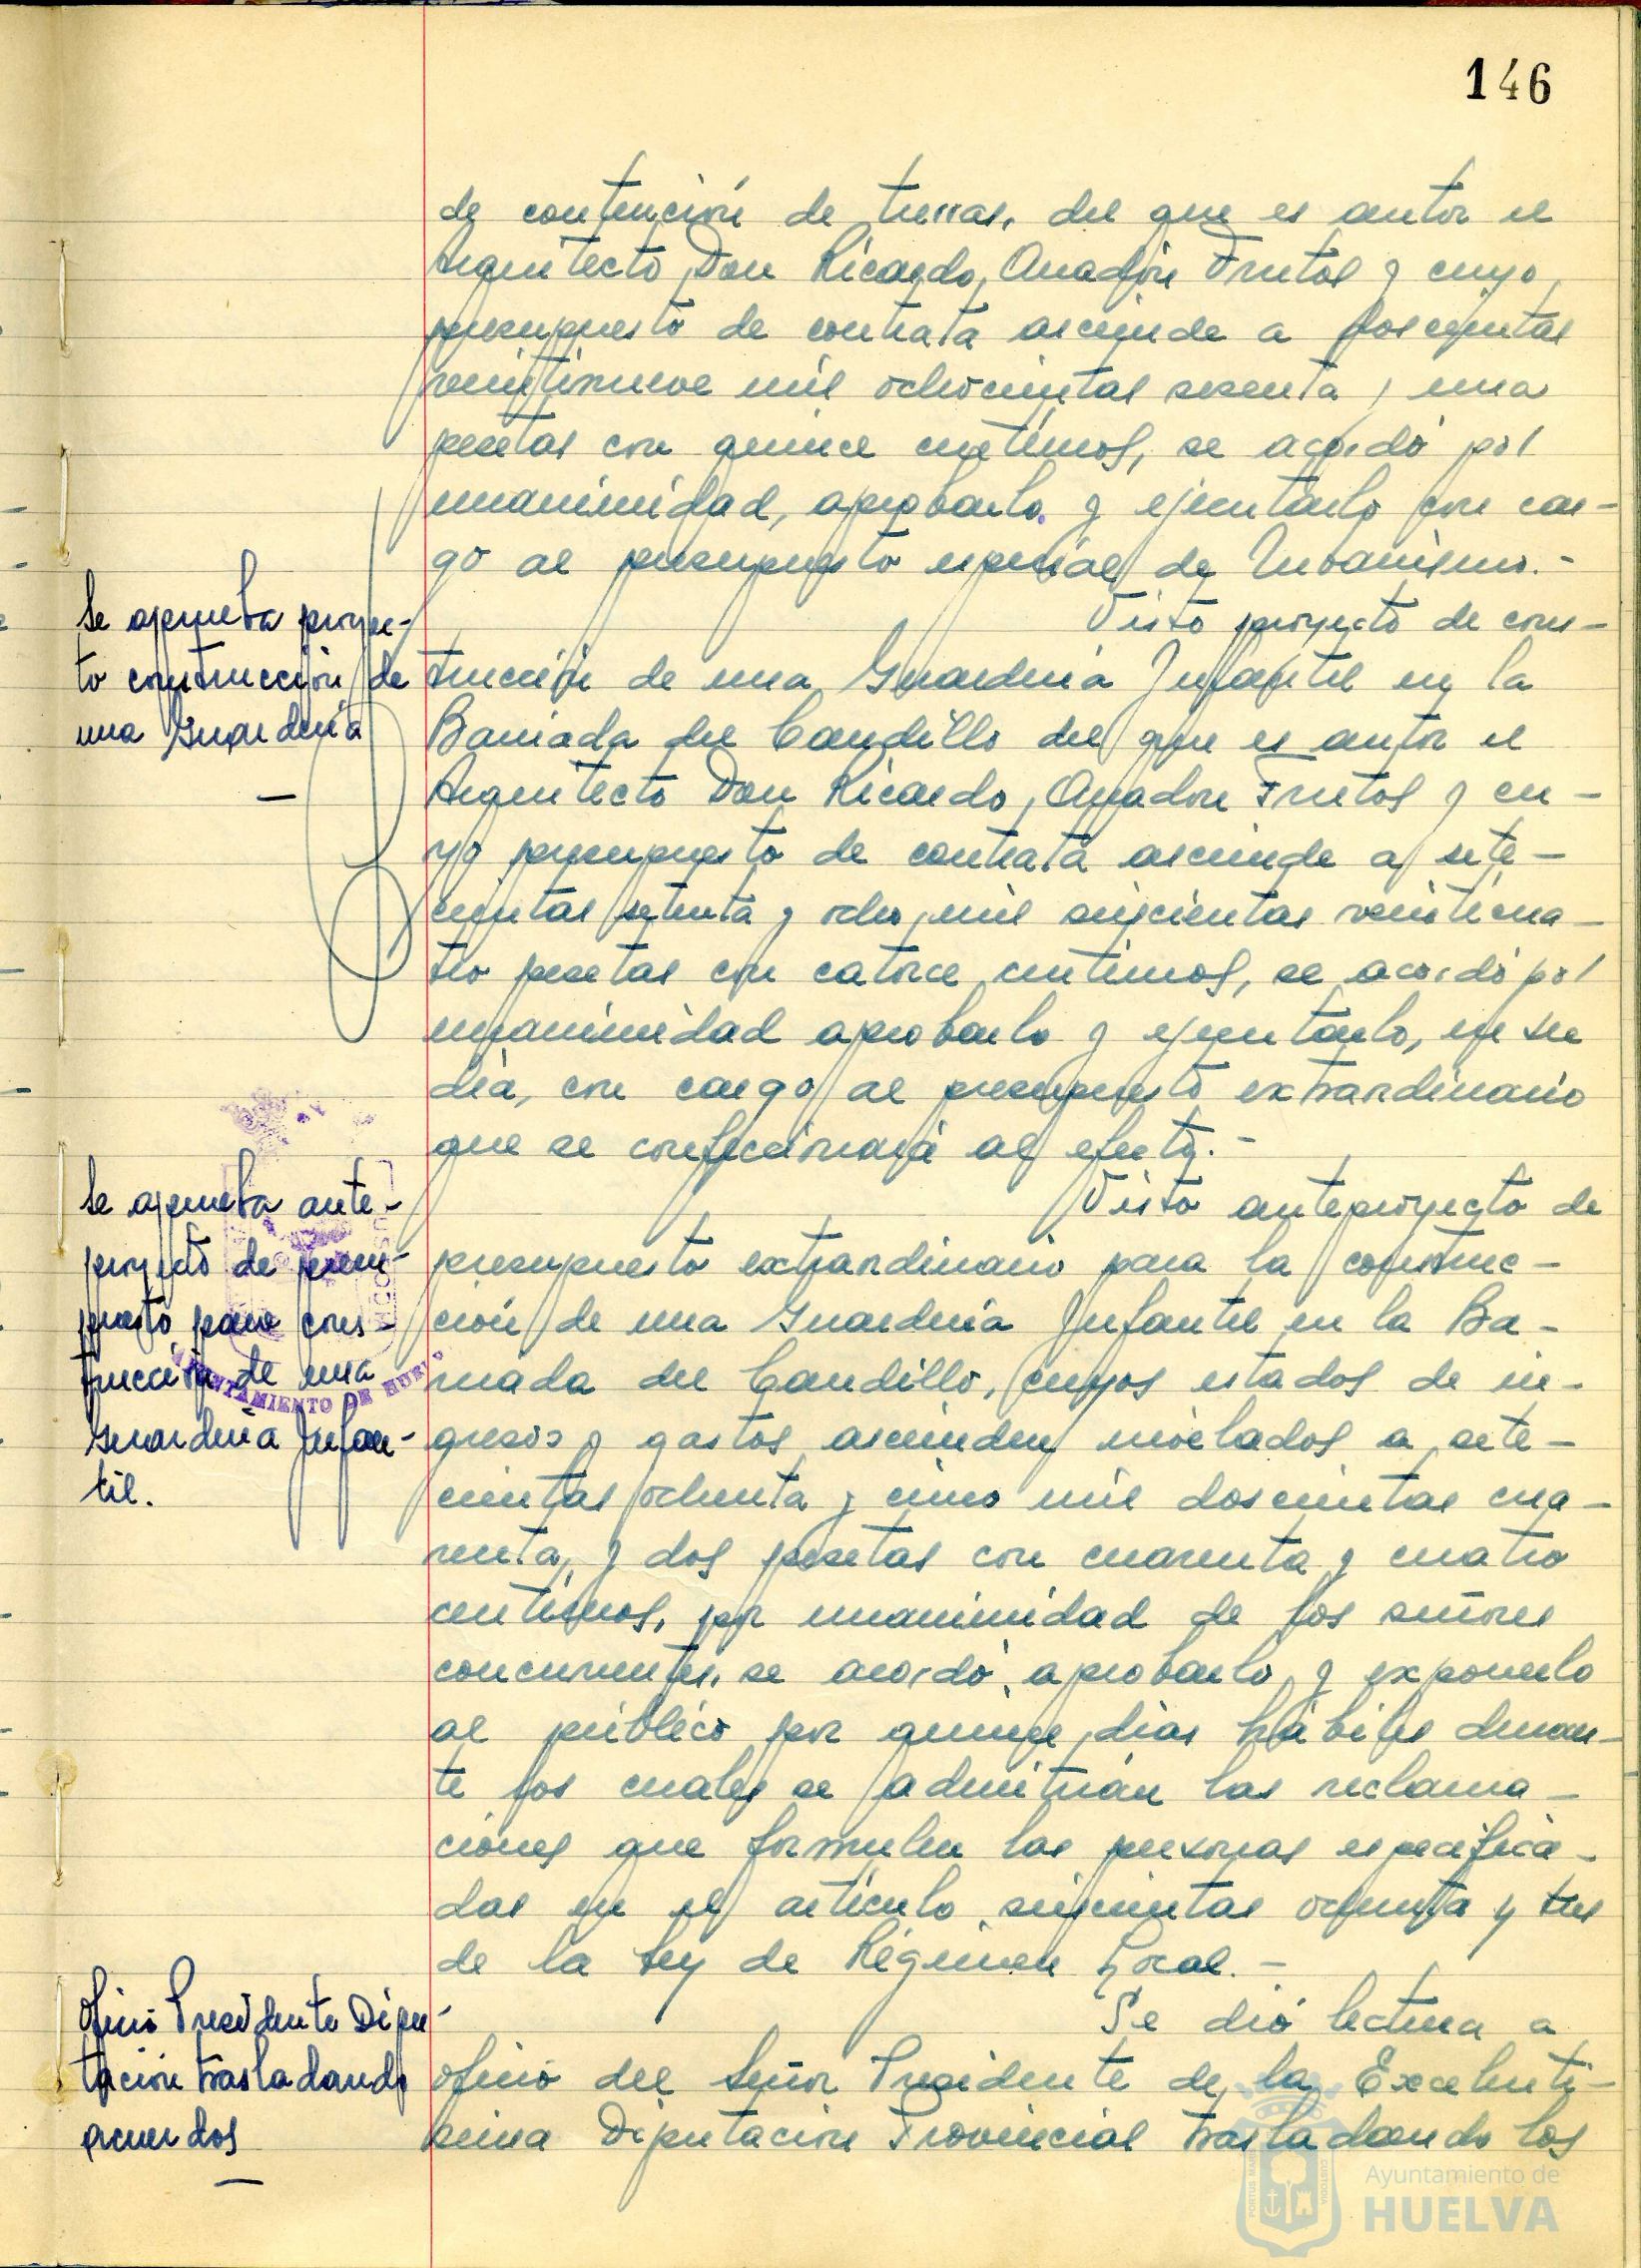 146
de contención de tierras, del que es autor el
Arquitecto Don Ricardo Anadón Frutos y cuyo
presupuesto de contrata asciende a doscientas
veintinueve mil ochocientas sesenta y una
pesetas con quince centimos, se acordó por
unanimidad, aprobarlo y ejecutarlo con car-
go al presupuesto especial de Urbanismo.-
Se aprueba proyec-
to construcción de
una Guardería
Visto proyecto de cons-
trucción de una Guardería Infantil en la
Barriada del Caudillo del que es autor el
Arquitecto Don Ricardo Anadón Frutos y cu-
yo presupuesto de contrata asciende a sete-
cientas setenta y ocho mil seiscientas veinticua-
tro pesetas con catorce centimos, se acordó por
unanimidad aprobarlo y ejecutarlo, en su
dia, con cargo al presupuesto extraordinario
que se confeccionará al efecto.-
Se aprueba ante-
proyecto de presu-
puesto para cons-
trucción de una
Guardería Infan-
til.
AYUNTAMIENTO DE HUELVA
Visto anteproyecto de
presupuesto extraordinario para la construc-
ción de una Guardería Infantil en la Ba-
rriada del Caudillo, cuyos estados de in-
gresos y gastos ascienden nivelados a sete-
cientas ochenta y cinco mil doscientas cua-
renta y dos pesetas con cuarenta y cuatro
centimos, por unanimidad de los señores
concurrentes, se acordó aprobarlo y exponerlo
al público por quince dias hábiles duran-
te los cuales se admitirán las reclama-
ciones que formulen las personas especifica-
das en el artículo seiscientas ochenta y tres
de la Ley de Régimen Local.-
Oficio Presidente Dipu-
tación trasladando
acuerdos
Se dió lectura a
oficio del Señor Presidente de la Excelentí-
sima Diputación Provincial trasladando los
Ayuntamiento de
HUELVA